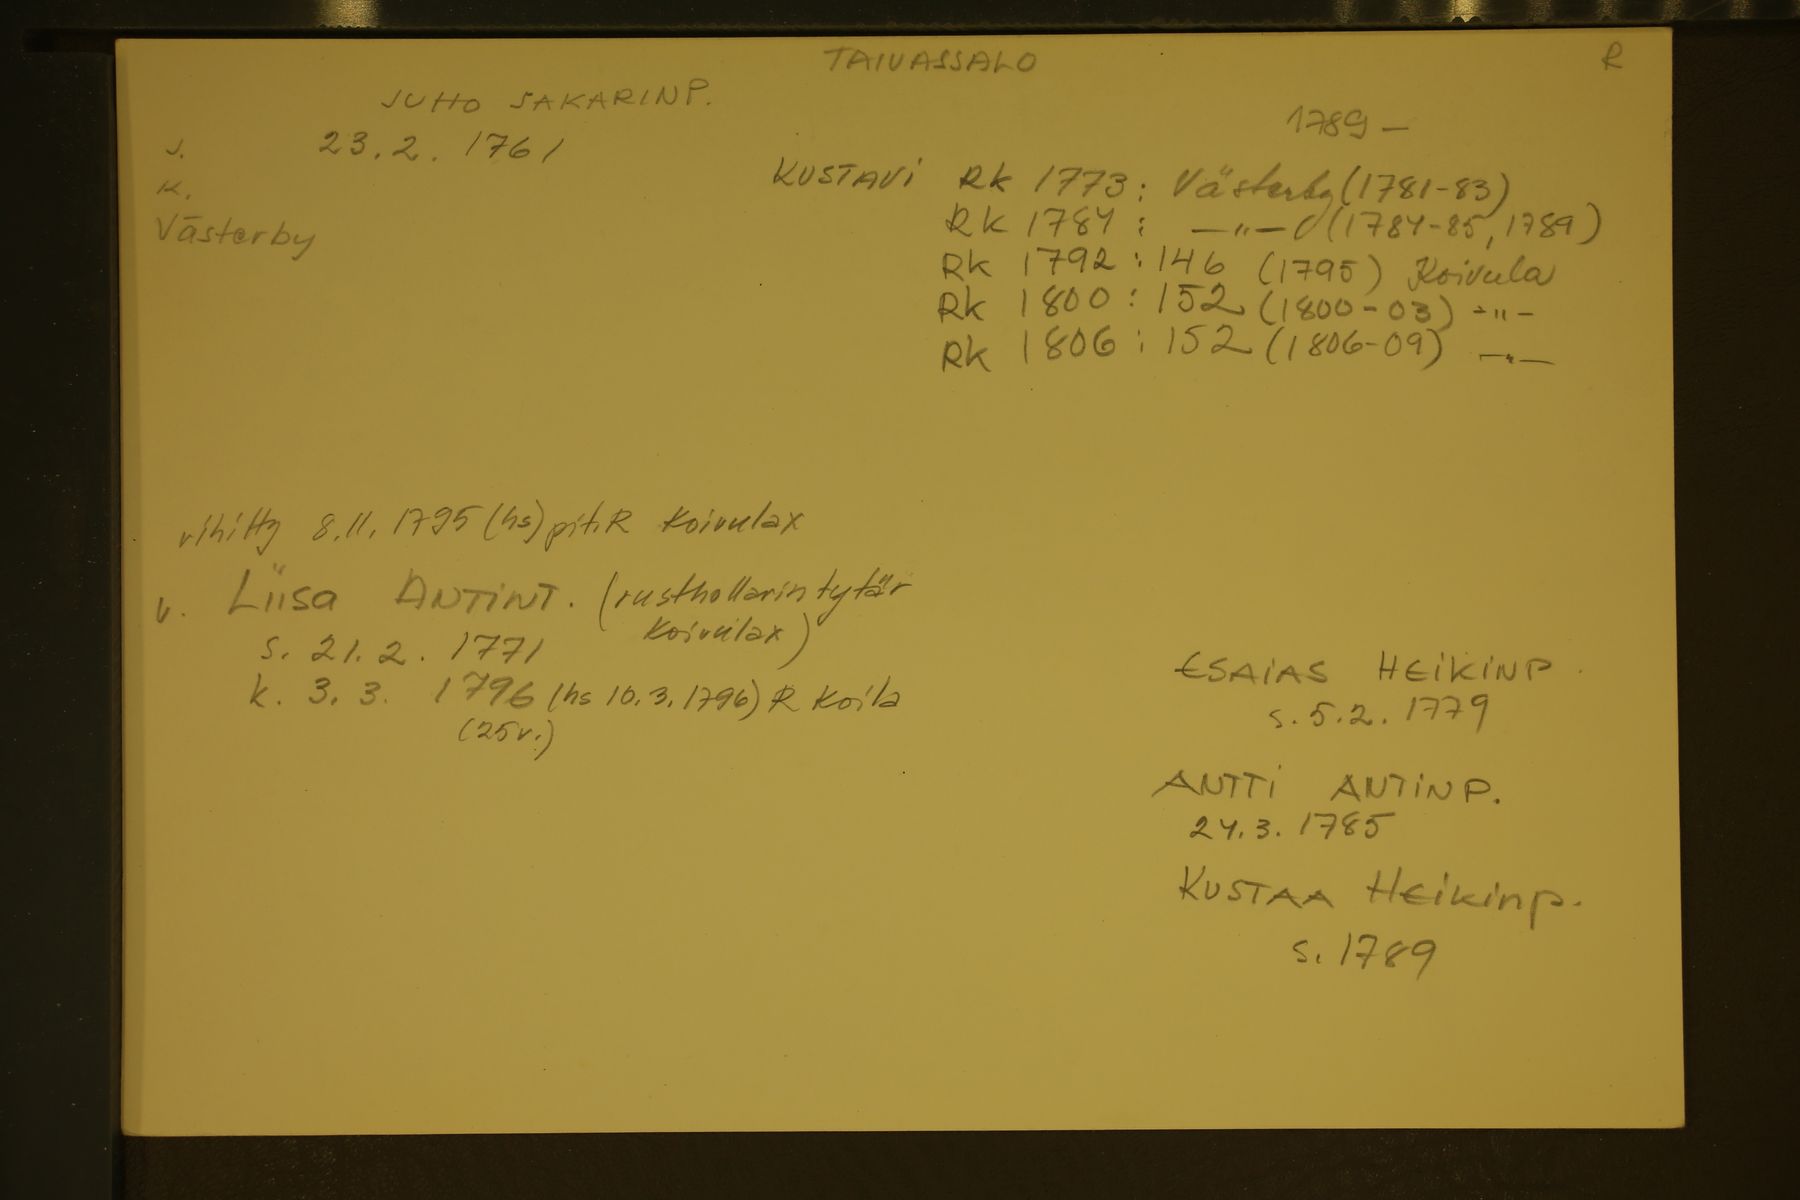 TAIVASSALO
R
JUHO SAKARINP.
1789 -
s. 23.2. 1761
k.
Västerby
KUSTAVI Rk 1773: Västerby (1781-83)
Rk 1784: -"- (1784-85, 1789)
Rk 1792: 146 (1795) Koivula
Rk 1800: 152 (1800-03) -"-
Rk 1806: 152 (1806-09) -"-
vihitty 8.11. 1795 (hs) pit. R Koivulax
v. Liisa ANTINT. (rusthollarin tytär
Koivulax)
s. 21.2. 1771
k. 3.3. 1796 (hs 10.3.1796) R Koila
(25v.)
ESAIAS HEIKINP.
s. 5.2. 1779
ANTTI ANTINP.
24.3. 1785
KUSTAA HEIKINP.
s. 1789